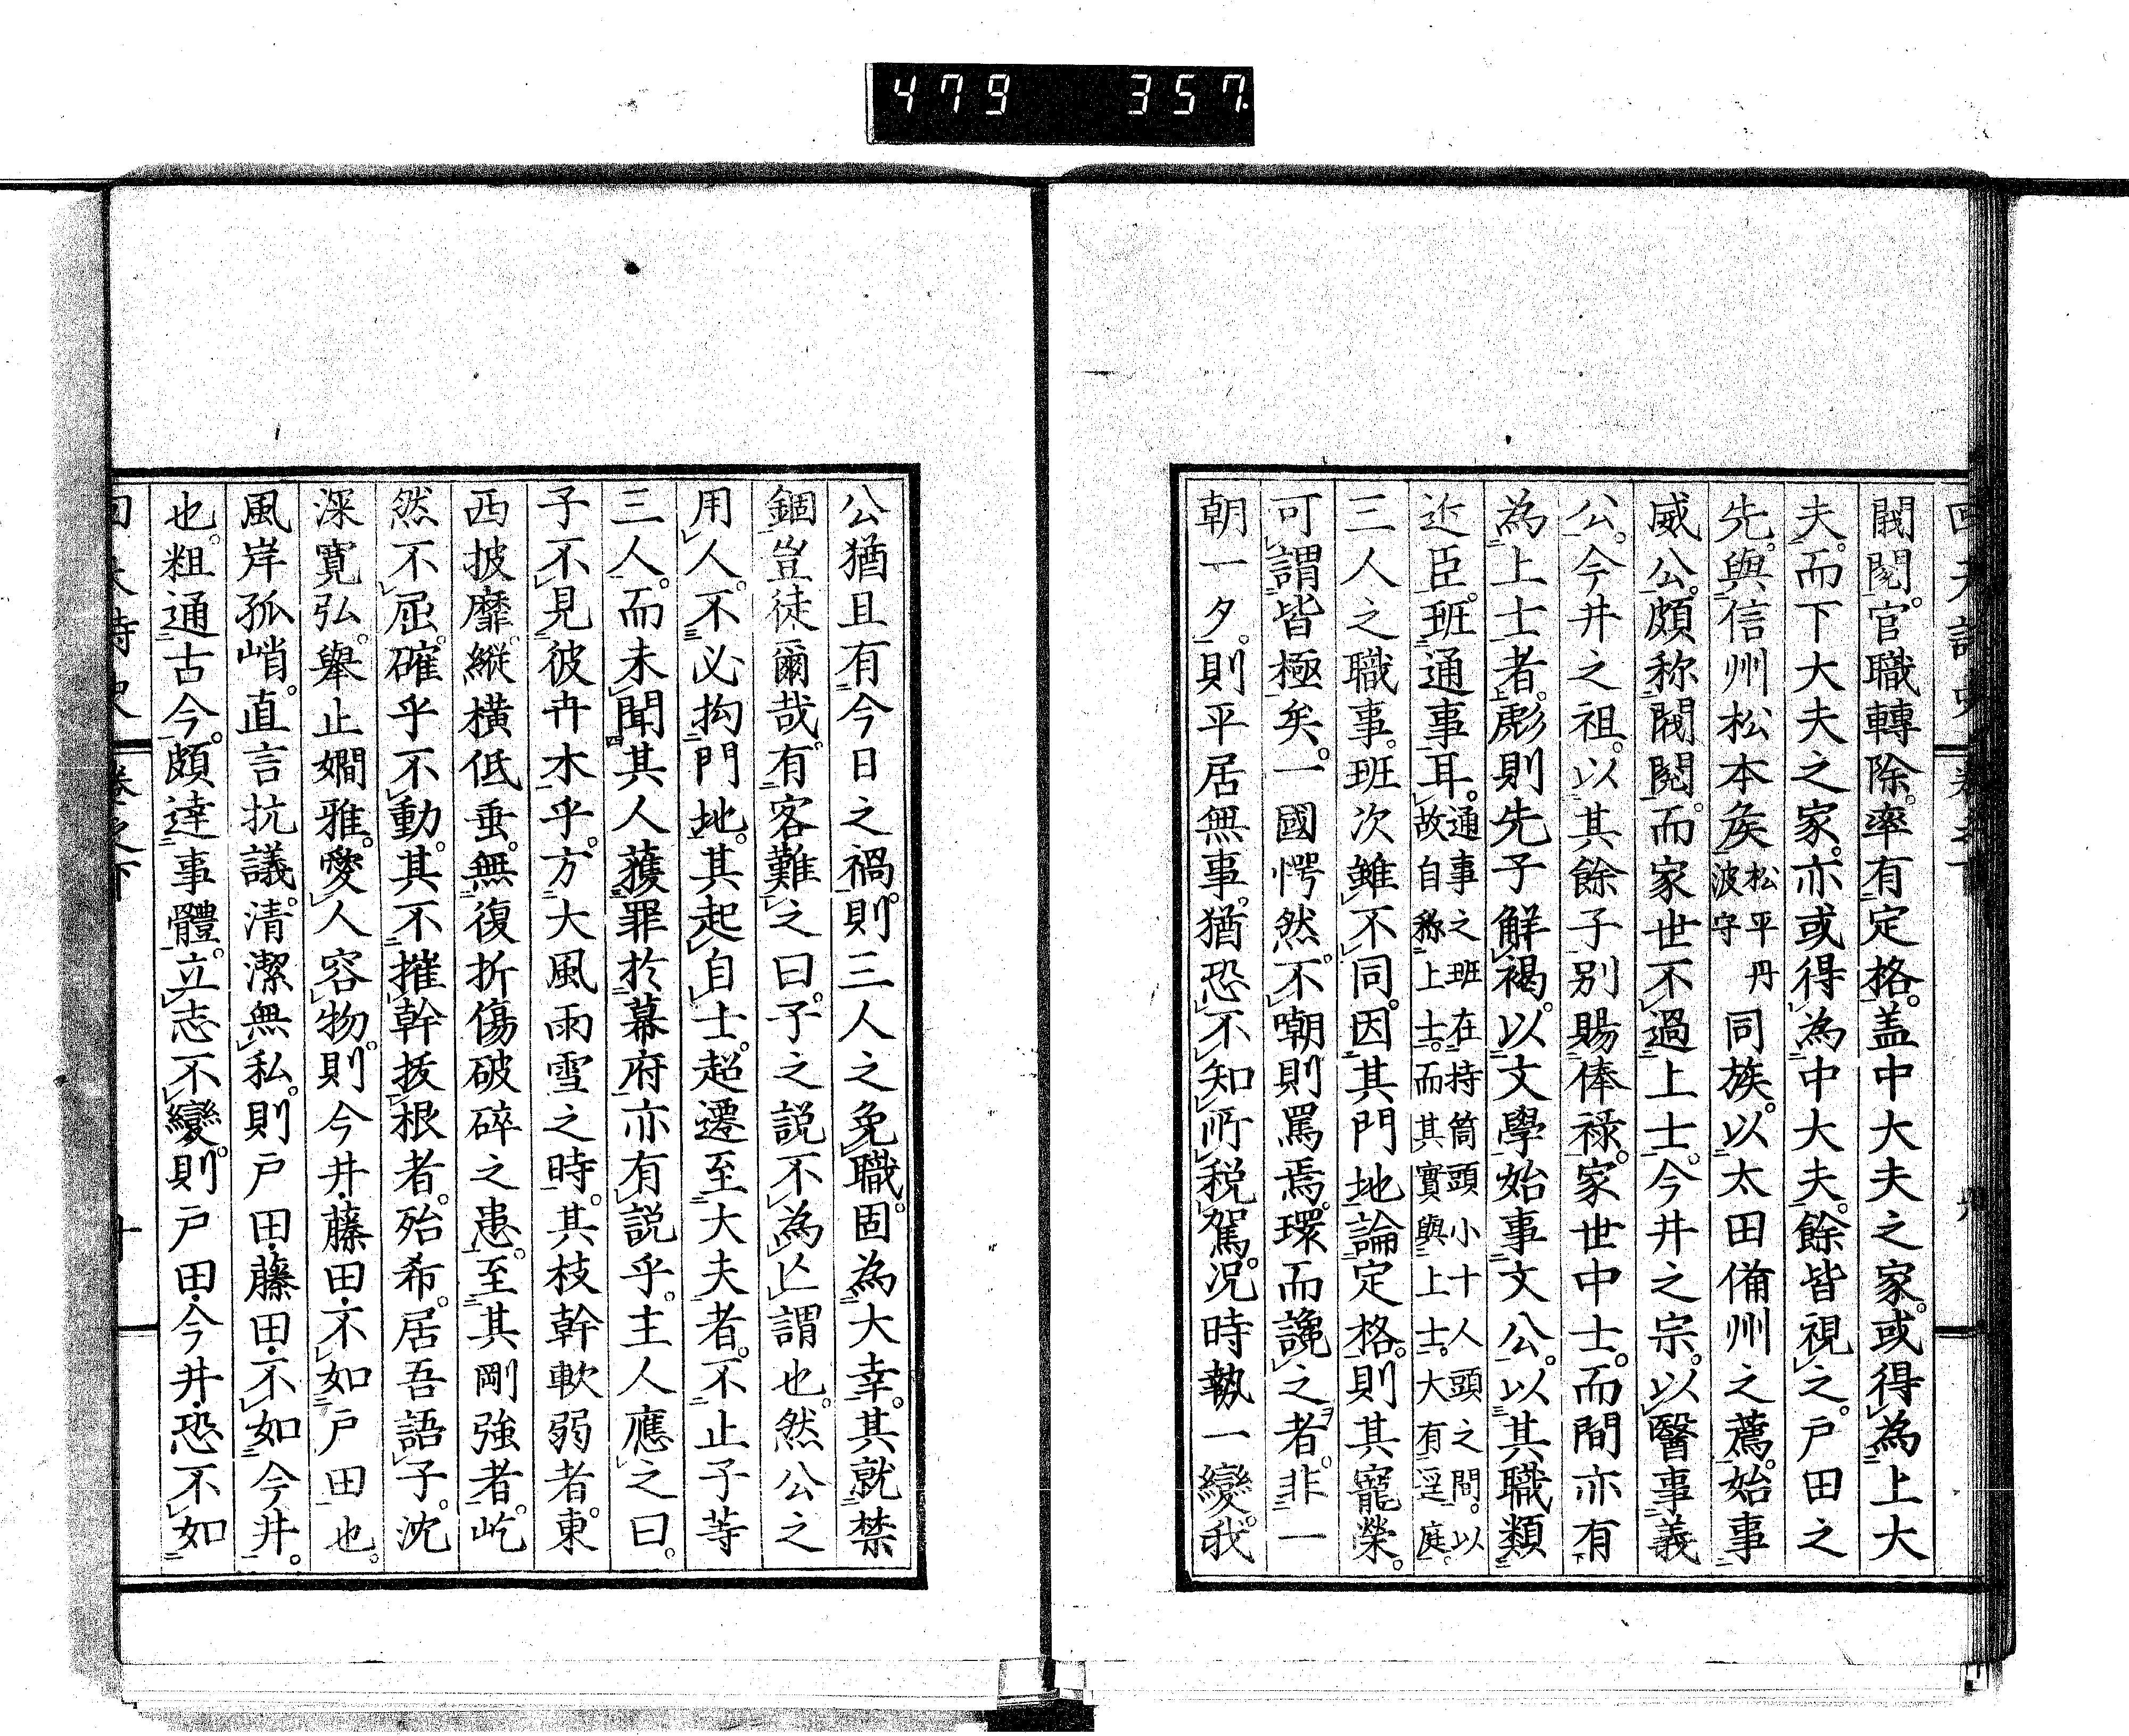 479 357
閥閲。官職轉除。率有定格。蓋中大夫之家。或得為上大
夫。而下大夫之家。亦或得為中大夫。餘皆視之。戸田之
先。與信州松本矦松平丹波守同族。以太田備州之薦。始事
威公。頗称閥閲。而家世不過上士。今井之宗。以醫事義
公。今井之祖。以其餘子別賜俸禄。家世中士。而間亦有
為上士者。彪則先子解褐。以文學始事文公。以其職類
近臣。班通事耳。通事之班在持筒頭小十人頭之間。以故自称上士。而其實與上士。大有逕庭。
三人之職事。班次雖不同。因其門地論定格。則其寵榮。
可謂皆極矣。一國愕然。不嘲則罵焉。環而讒之者。非一
朝一夕。則平居無事。猶恐不知所税駕。况時勢一變。我
公猶且有今日之禍。則三人之免職。固為大幸。其就禁
錮。豈徒爾哉。有客難之曰。子之説不為亾謂也。然公之
用人。不必拘門地。其起自士。超遷至大夫者。不止子等
三人。而未聞其人獲罪於幕府亦有説乎。主人應之曰。
子不見彼卉木乎。方大風雨雪之時。其枝幹軟弱者。東
西披靡。縱横低垂。無復折傷破碎之患。至其剛強者。屹
然不屈。確乎不動。其不摧幹拔根者。殆希。居吾語子。沈
深寛弘。舉止嫺雅。愛人容物。則今井・藤田・不如戸田也。
風岸孤峭。直言抗議。清潔無私。則戸田・藤田・不如今井。
也。粗通古今。頗達事體。立志不變。則戸田・今井・恐不如